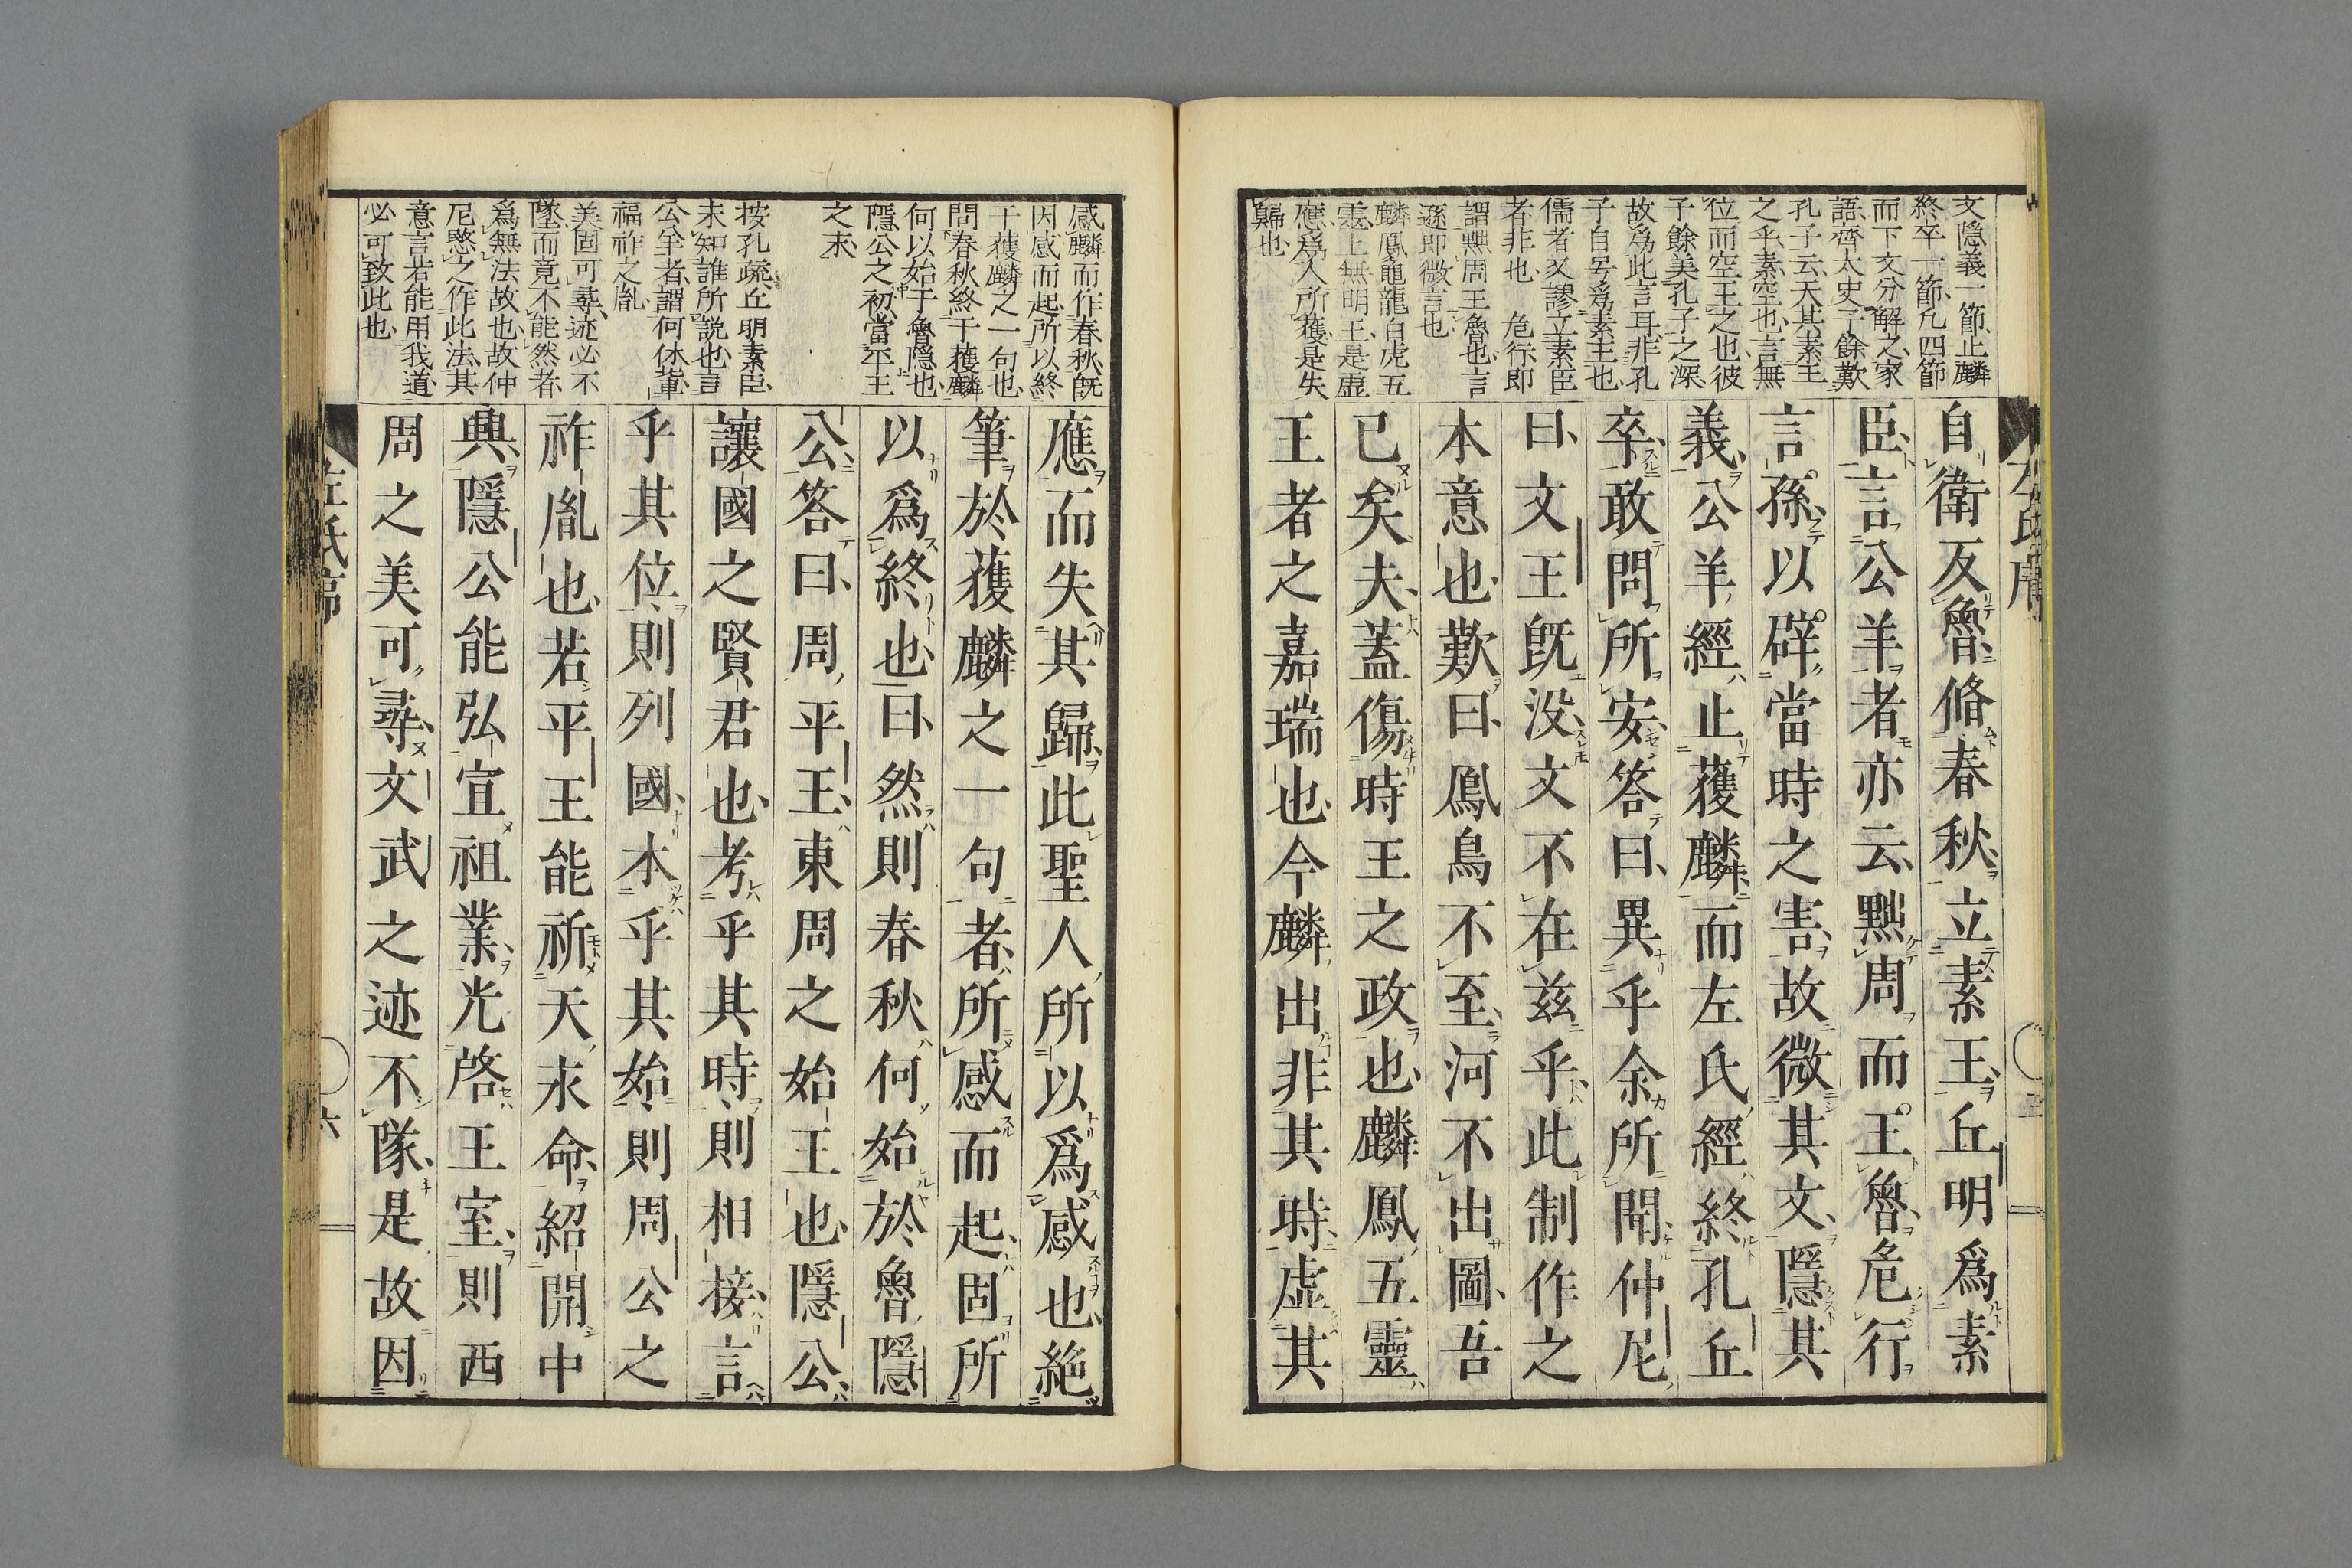 文隱義一節止麟
終卒一節凡四節
而下文分解之家
語齊太史子餘歎
孔子云天其素王
之乎素空也言無
位而空王之也彼
子餘美孔子之深
故爲此言耳非孔
子自号爲素王也
儒者又謬立素臣
者非也 危行即
謂黜周王魯也言
遜即微言也
麟鳳龜龍白虎五
靈上無明王是虛
應爲人所獲是失
歸也
自衛反魯脩春秋立素王丘明爲素
臣言公羊者亦云黜周而王魯危行
言孫以辟當時之害故微其文隱其
義公羊經止獲麟而左氏經終孔丘
卒敢問所安答曰異乎余所聞仲尼
曰文王既没文不在茲乎此制作之
本意也歎曰鳳鳥不至河不出圖吾
已矣夫蓋傷時王之政也麟鳳五靈
王者之嘉瑞也今麟出非其時虛其
感麟而作春秋既
因感而起所以終
于獲麟之一句也
問春秋終于獲麟
何以始于魯隱也
隱公之初當平王
之末
按孔疏丘明素臣
未知誰所説也言
公羊者謂何休軰
福祚之胤
美固可尋迹必不
墜而竟不能然者
爲無法故也故仲
尼愍之作此法其
意言若能用我道
必可致此也
應而失其歸此聖人所以爲感也絶
筆於獲麟之一句者所感而起固所
以爲終也曰然則春秋何始於魯隱
公答曰周平王東周之始王也隱公
讓國之賢君也考乎其時則相接言
乎其位則列國本乎其始則周公之
祚胤也若平王能祈天永命紹開中
興隱公能弘宣祖業光啓王室則西
周之美可尋文武之迹不隊是故因
左氏序
六